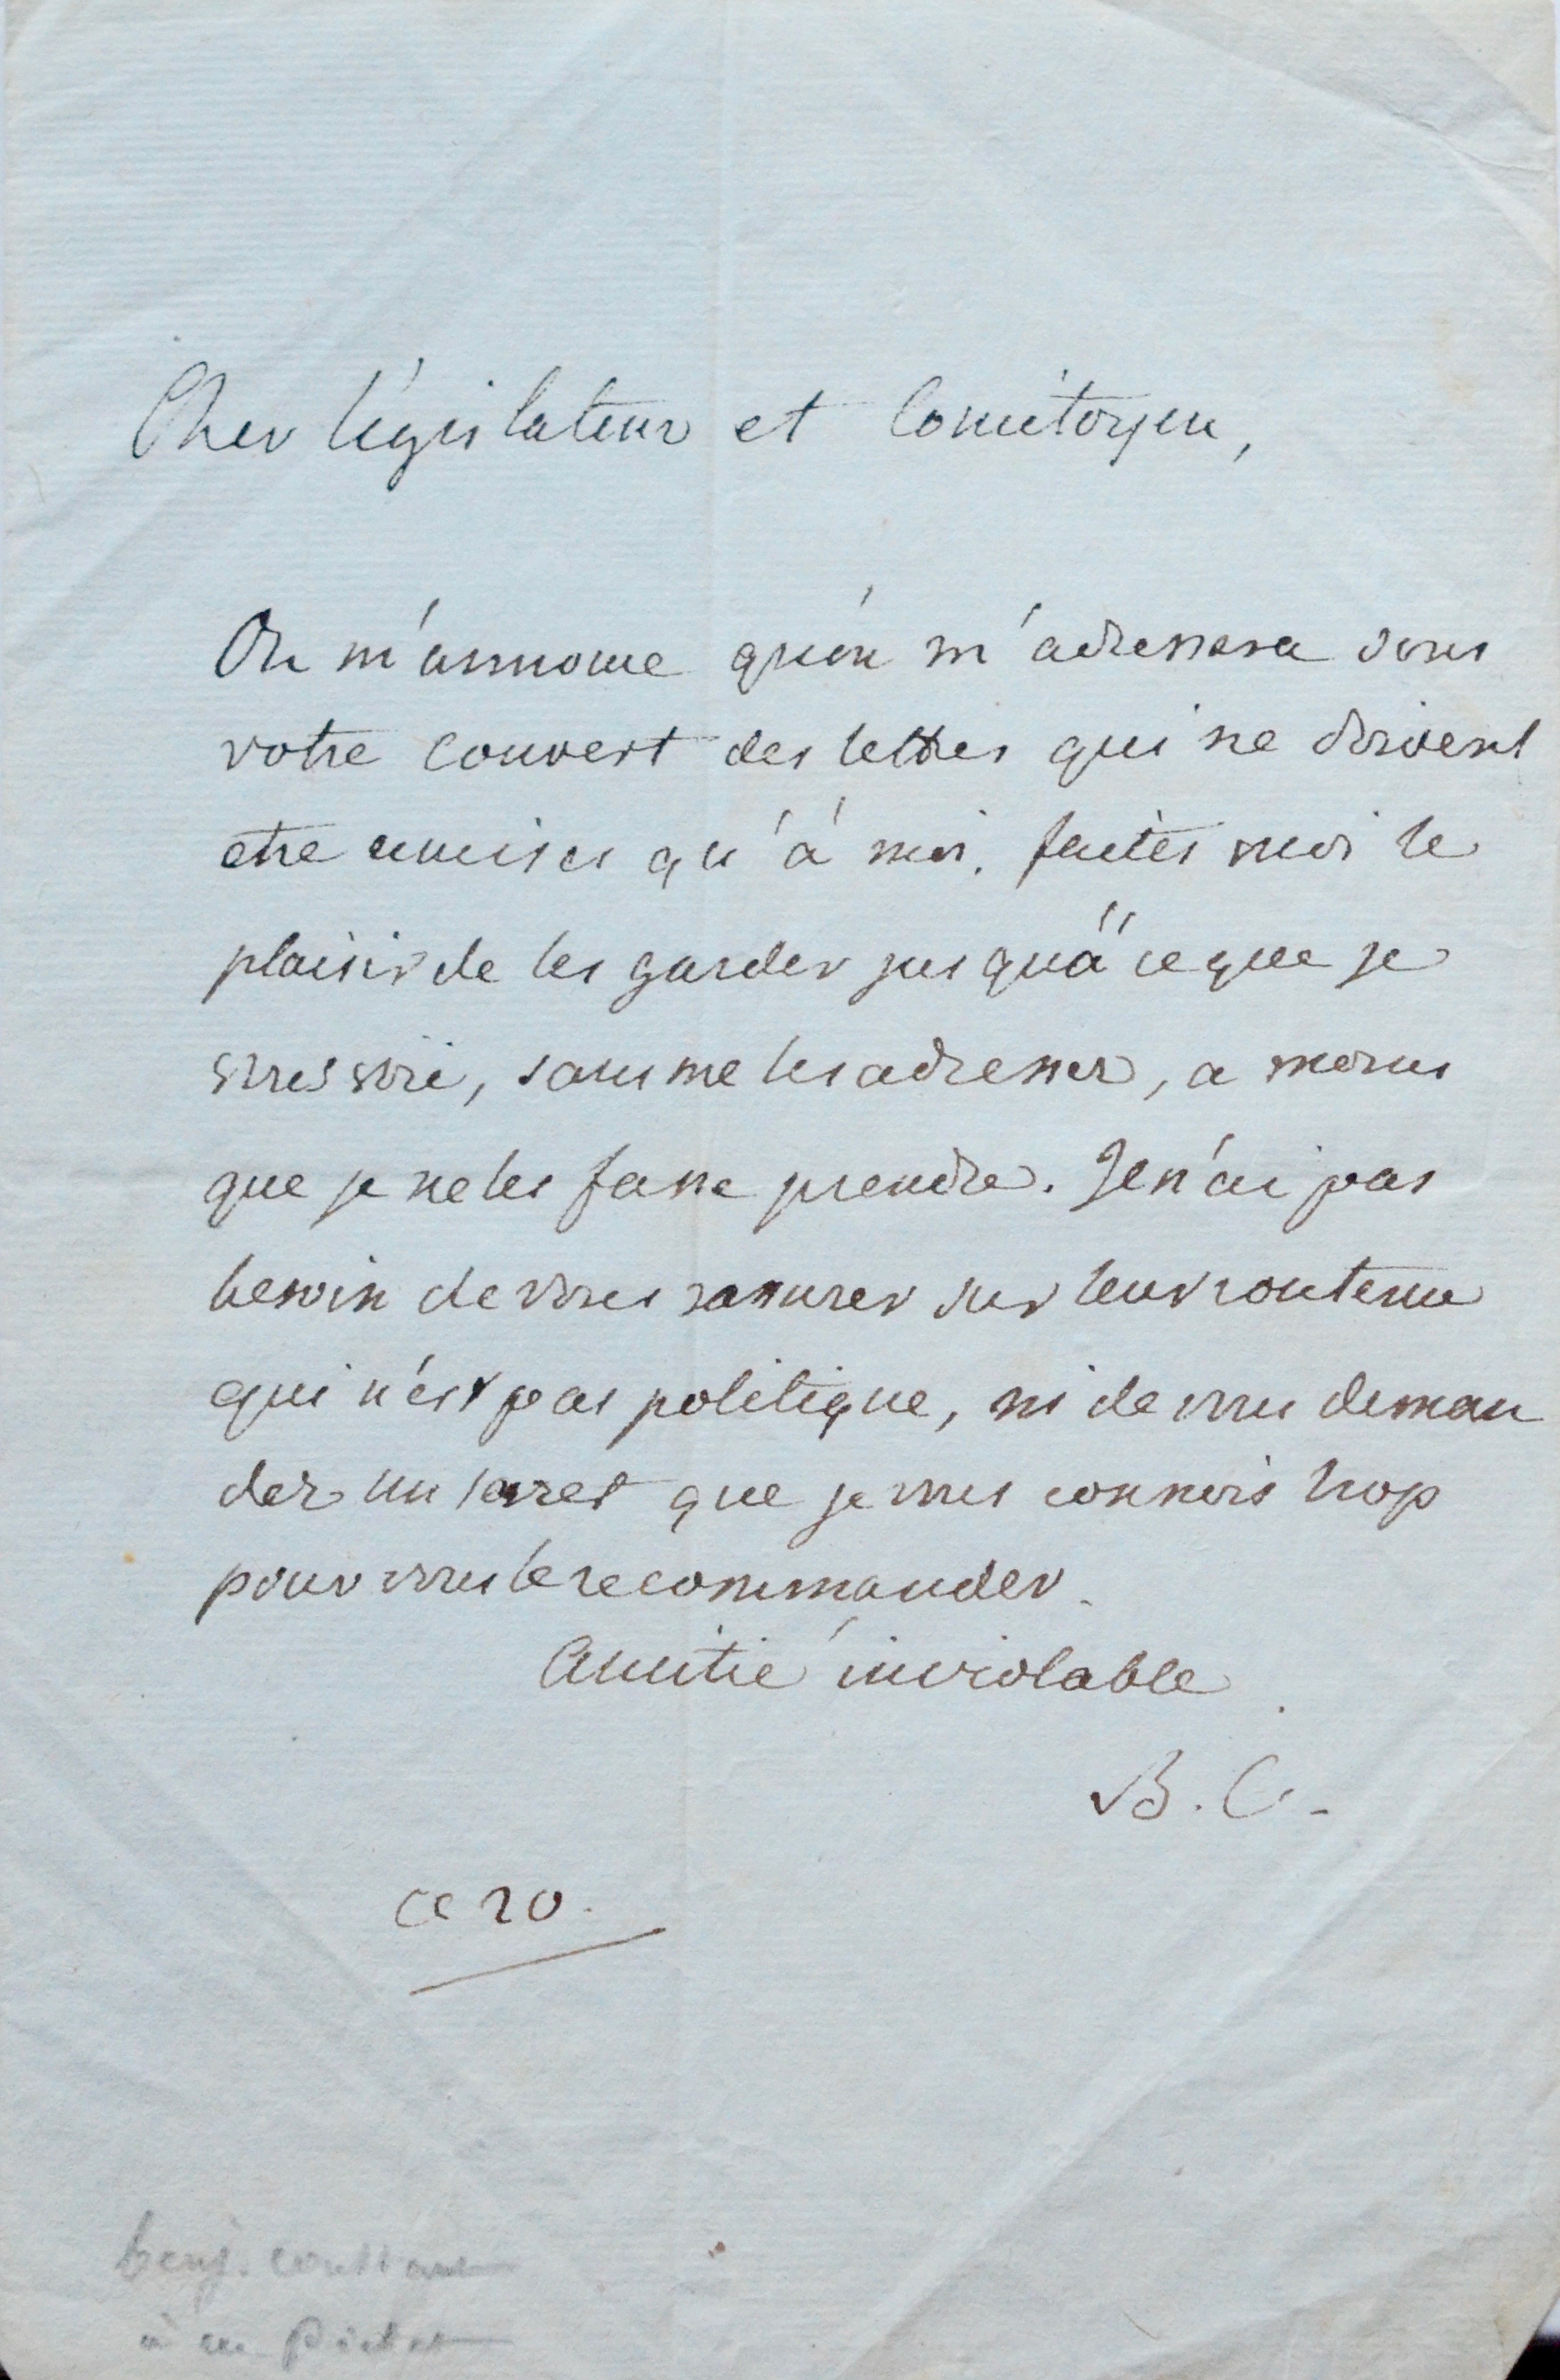 Cher législateur et Concitoyen,
On m'annonce qu'on m'adressera sous
votre couvert des lettres qui ne doivent
etre remises qu'à moi. faites moi le
plaisir de les garder jusqu'à ce que je
vous voie, sans me les adresser, a moins
que je ne les fasse prendre. Je n'ai pas
besoin de vous rassurer sur leur contenu
qui n'est pas politique, ni de vous deman
der un secret que je vous connois trop
pour vous le recommander.
Amitié inviolable.
B. C.
ce 20.
benj. constant
à m Pictet